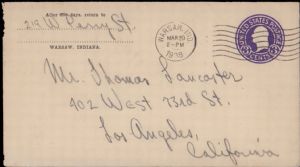 After five days, return to
219 W. Perry St.
WARSAW, INDIANA.
WARSAW, IND.
MAR 20
2-PM
1938
UNITED STATES POSTAGE
3 CENTS 3
Mr. Thomas Lancaster
402 West 73rd St.
Los Angeles,
California